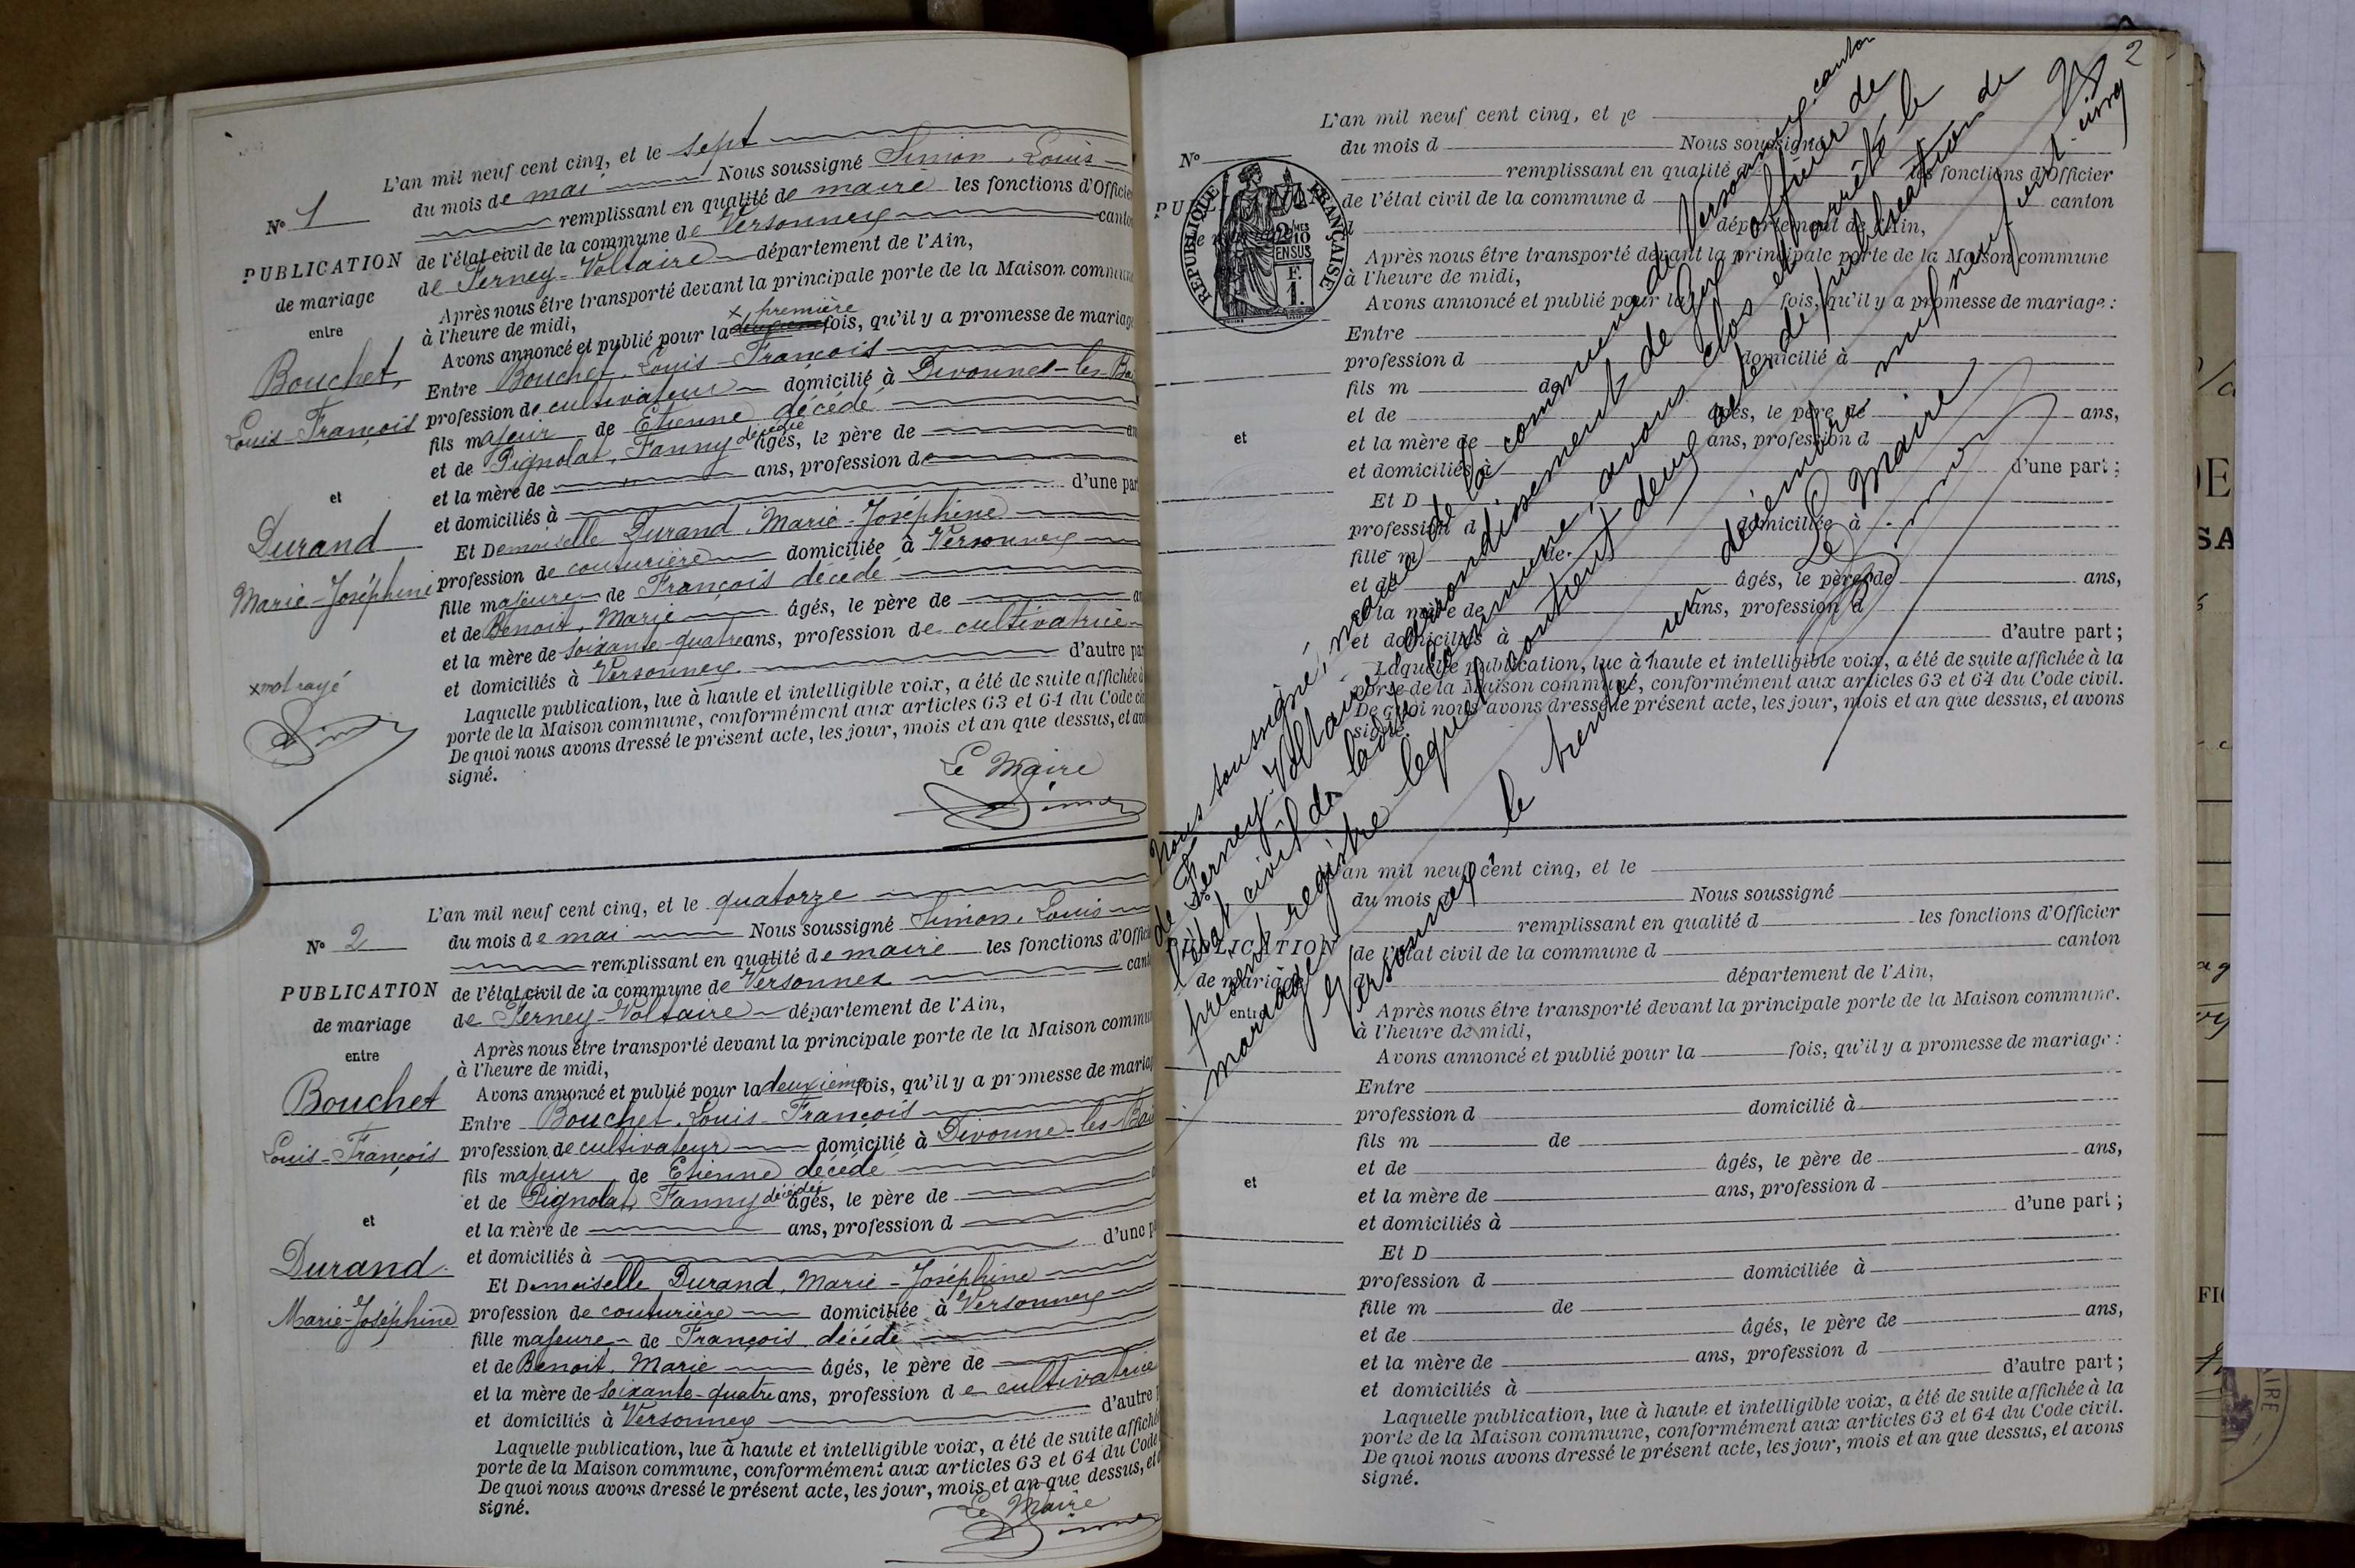 L'an mil neuf cent cinq, et le sept
du mois de mai Nous soussigné Simon Louis
N° 1 remplissant en qualité de maire les fonctions d'Officier
PUBLICATION de l'état civil de la commune de Versonnex canton
de mariage de Ferney-Voltaire département de l'Ain,
entre Après nous être transporté devant la principale porte de la Maison commune
à l'heure de midi,
× première
Avons annoncé et publié pour la fois, qu'il y a promesse de mariage
Bouchet, Entre Bouchet, Louis-François
Louis-François profession de cultivateur domicilié à Divonne-les-Bai
fils majeur de Etienne décédé
et de Pignolat, Fanny décédée âgés, le père de an
et la mère de ans, profession de
et et domiciliés à d'une par
Durand Et Demoiselle Durand, Marie-Joséphine
Marie-Joséphine profession de couturière domiciliée à Versonnex
fille majeure de François décédé
et de Benoit, Marie âgés, le père de a
et la mère de soixante-quatre ans, profession de cultivatrice
et domiciliés à Versonnex d'autre par
× mot rayé
Laquelle publication, lue à haute et intelligible voix, a été de suite affichée à
Simon porte de la Maison commune, conformément aux articles 63 et 64 du Code ci
De quoi nous avons dressé le présent acte, les jour, mois et an que dessus, et avo
signé.
Le Maire
Simon
L'an mil neuf cent cinq, et le quatorze
du mois de mai Nous soussigné Simon, Louis
N° 2 remplissant en qualité de maire les fonctions d'Offici
PUBLICATION de l'état civil de la commune de Versonnex cant
de mariage de Ferney-Voltaire département de l'Ain,
entre Après nous être transporté devant la principale porte de la Maison commu
à l'heure de midi,
Avons annoncé et publié pour la deuxième fois, qu'il y a promesse de mariag
Bouchet Entre Bouchet, Louis-François
Louis-François profession de cultivateur domicilié à Divonne-les-Bai
fils majeur de Etienne décédé
et de Pignolat, Fanny décédée âgés, le père de
et la mère de ans, profession d
et et domiciliés à d'une p
Durand Et Demoiselle Durand, Marie-Joséphine
Marie-Joséphine profession de couturière domiciliée à Versonnex
fille majeure de François décédé
et de Benoit, Marie âgés, le père de
et la mère de soixante-quatre ans, profession de cultivatrice
et domiciliés à Versonnex d'autre p
Laquelle publication, lue à haute et intelligible voix, a été de suite affiché
porte de la Maison commune, conformément aux articles 63 et 64 du Code
De quoi nous avons dressé le présent acte, les jour, mois et an que dessus, et
signé.
Le Maire
Simon
2
L'an mil neuf cent cinq, et le
du mois d Nous soussigné
N° remplissant en qualité d les fonctions d'Officier
de l'état civil de la commune d canton
d département de l'Ain,
RÉPUBLIQUE FRANÇAISE
2/10
EN SUS
F.
1.
Après nous être transporté devant la principale porte de la Maison commune
à l'heure de midi,
Avons annoncé et publié pour la fois, qu'il y a promesse de mariage :
Entre
profession d domicilié à
fils m de
et de âgés, le père de ans,
et et la mère de ans, profession d
et domiciliés à d'une part ;
Et D
profession d domiciliée à
fille m de
et de âgés, le père de ans,
et la mère de ans, profession d
et domiciliés à d'autre part ;
Laquelle publication, lue à haute et intelligible voix, a été de suite affichée à la
porte de la Maison commune, conformément aux articles 63 et 64 du Code civil.
De quoi nous avons dressé le présent acte, les jour, mois et an que dessus, et avons
signé.
Nous soussigné, maire de la commune de Versonnex, canton
de Ferney-Voltaire arrondissement de Gex, officier de
l'état civil de ladite commune, avons clos et arrêté le
présent registre lequel contient deux actes de publication de
mariage
Versonnex, le trente un décembre mil neuf cent cinq
Le Maire
Simon
L'an mil neuf cent cinq, et le
du mois d Nous soussigné
remplissant en qualité d les fonctions d'Officier
PUBLICATION de l'état civil de la commune d canton
de mariage d département de l'Ain,
entre Après nous être transporté devant la principale porte de la Maison commune.
à l'heure de midi,
Avons annoncé et publié pour la fois, qu'il y a promesse de mariage :
Entre
profession d domicilié à
fils m de
et de âgés, le père de ans,
et et la mère de ans, profession d
et domiciliés à d'une part ;
Et D
profession d domiciliée à
fille m de
et de âgés, le père de ans,
et la mère de ans, profession d
et domiciliés à d'autre part ;
Laquelle publication, lue à haute et intelligible voix, a été de suite affichée à la
porte de la Maison commune, conformément aux articles 63 et 64 du Code civil.
De quoi nous avons dressé le présent acte, les jour, mois et an que dessus, et avons
signé.